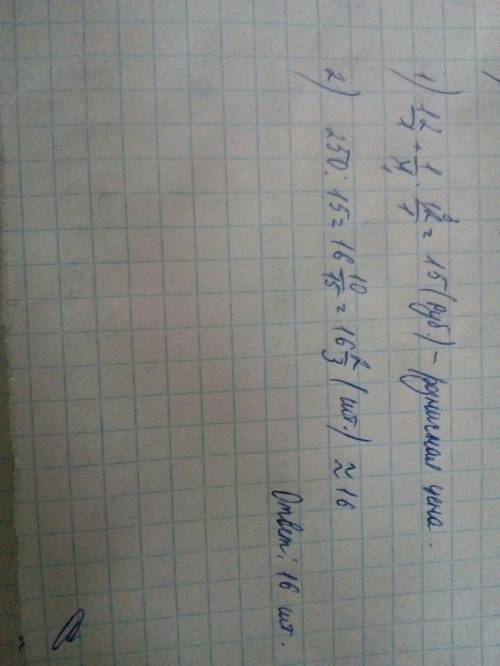 1) 12/1 + 1/4 · 12/1 = 15 (руб.) – розничная цена.
2) 250 : 15 = 16 10/15 = 16 2/3 (шт.) ≈ 16
Ответ: 16 шт.